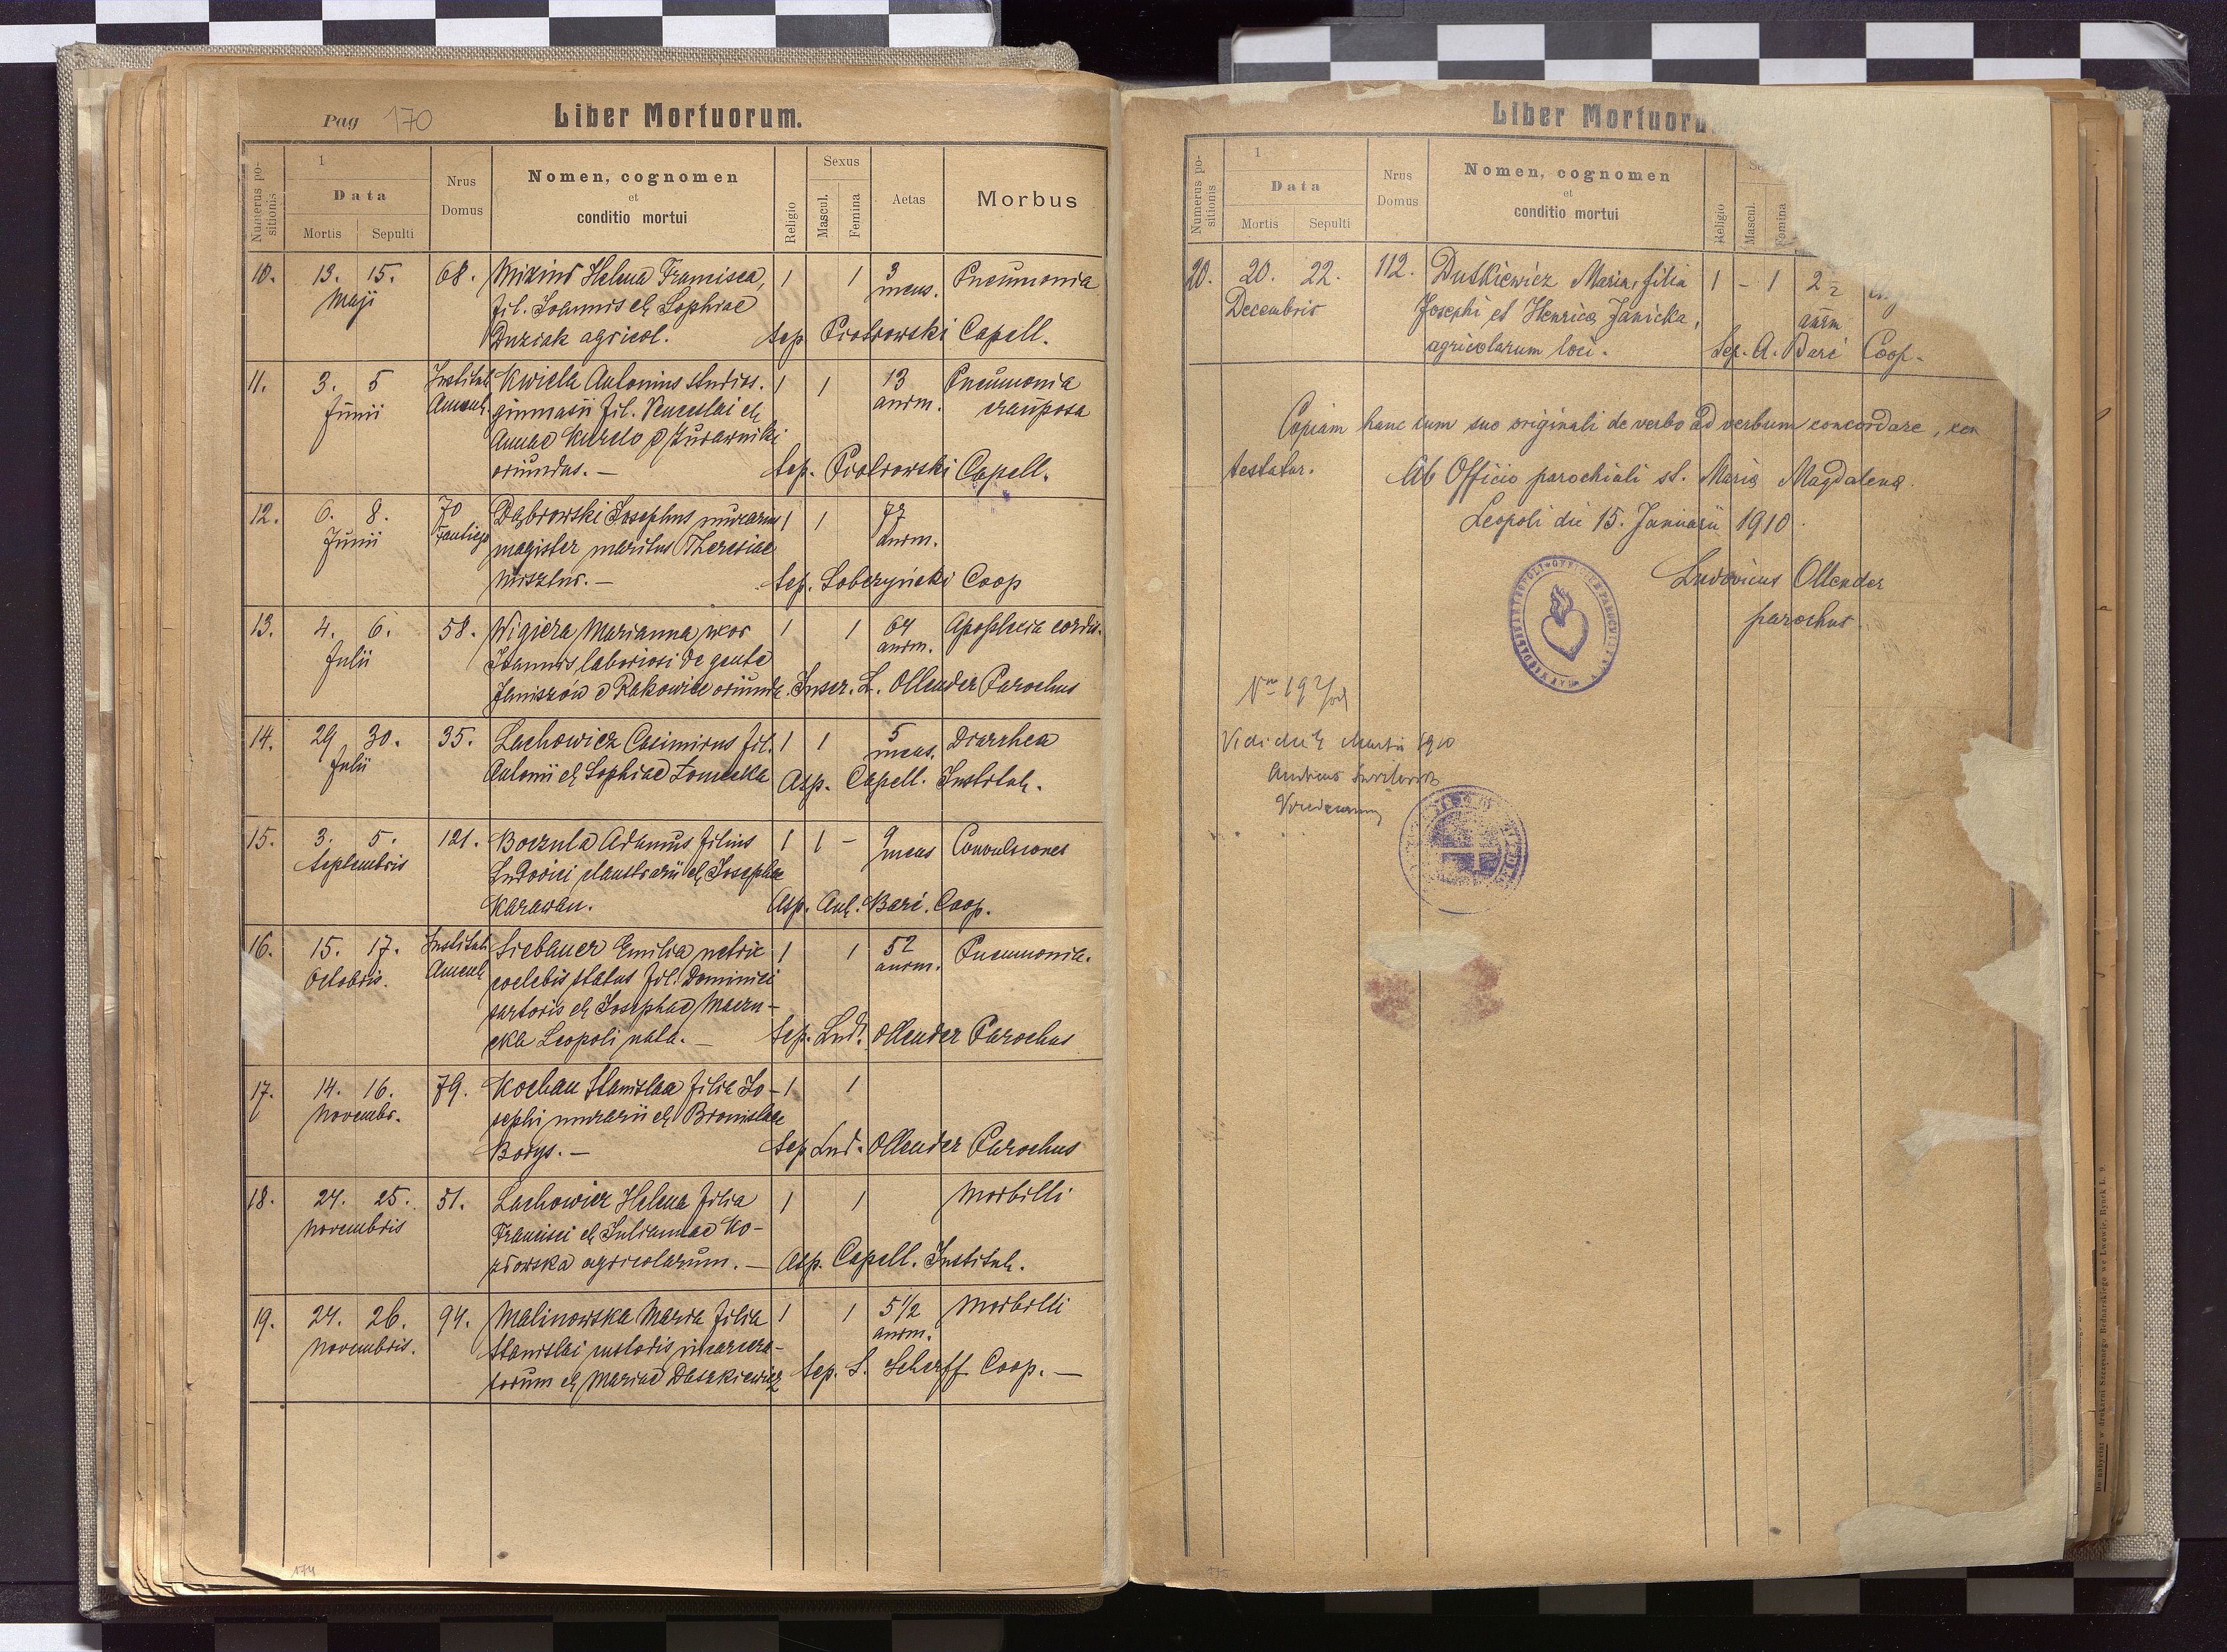 Pag 170
Liber Mortuorum.
Numerus positionis
1
Data
Mortis Sepulti
Nrus Domus
Nomen, cognomen
et
conditio mortui
Religio
Sexus
Mascul.
Femina
Aetas
Morbus
10. 13. 15. 68. Helena Francisca, 1 1 3 Pneumonia
Maji fil. Joannis et Sophiae mens.
Duziak agricol. Sep Piotrowski Capell.
11. 3. 5 Institut Kwiela Antonius studios. 1 1 13 Pneumonia
Junii Ament. gimnasii fil. Venceslai et annm. crauposa
Annae
oriundus. — Sep. Piotrowski Capell.
12. 6. 8. 70 Dąbrowski Josephus murarius 1 1 77
Junii magister maritus Theresiae annm.
Sep. Sobczyński Coop
13. 4. 6. 58. Wigiera Marianna uxor 1 1 64 Apoplexia cordis.
Julii Joannis laboriosi de gente annm.
Janiszów e Rakowice oriunda. Inscr. L. Ollender Parochus
14. 29 30. 35. Lachowicz Casimirus fil. 1 1 5 Diarrhea
Julii Antonii et Sophiae mens.
Asp. Capell. Institut.
15. 3. 5. 121. Boczula Adamus filius 1 1 – 9 Convulsiones
Septembris Ludovici claustrarii et Josephae mens
Karawan. Asp. Ant. Barć. Coop.
16. 15. 17. Institut. Siebauer Emilia netrix 1 1 52 Pneumonia.
Octobris. Ament coelebis status fil. Dominici annm.
sartoris et Josephae Maczu-
cka Leopoli nata. — Sep. Lud. Ollender Parochus
17. 14. 16. 79. Kochan Stanislaa filia Jo- 1 1
Novembr. sephi murarii et Bronislaae
Borys. — Sep Lud. Ollender Parochus
18. 24. 25. 51. Lachowicz Helena filia 1 1 Morbilli
Novembris Francisci et Julianae Ko-
złowska agricolarum. — Asp. Capell. Institut.
19. 24. 26. 94. Malinowska Maria filia 1 1 5 1/2 Morbilli
Novembris. Stanislai custodis incarcera- annm.
torum et Mariae Daszkiewicz Sep. S. Scherff Coop. —
174
Liber Mortuoru
Numerus positionis
1
Data
Mortis Sepulti
Nrus Domus
Nomen, cognomen
et
conditio mortui
Religio
Se
Mascul.
Femina
20. 20. 22. 112. Dutkiewicz Maria, filia 1 – 1 2 1/2
Decembris Josephi et Henrica Janicka, annm
agricolarum loci. Sep. A. Barć Coop.
Copiam hanc cum suo originali de verbo ad verbum concordare,
testatur. Ab Officio parochiali st. Mariæ Magdalenæ.
Leopoli die 15. Januarii 1910.
Ludovicus Ollender
parochus.
Vidi die Martii 1910
175
Do nabycia w drukarni Szczęsnego Bednarskiego we Lwowie, Rynek L. 9.